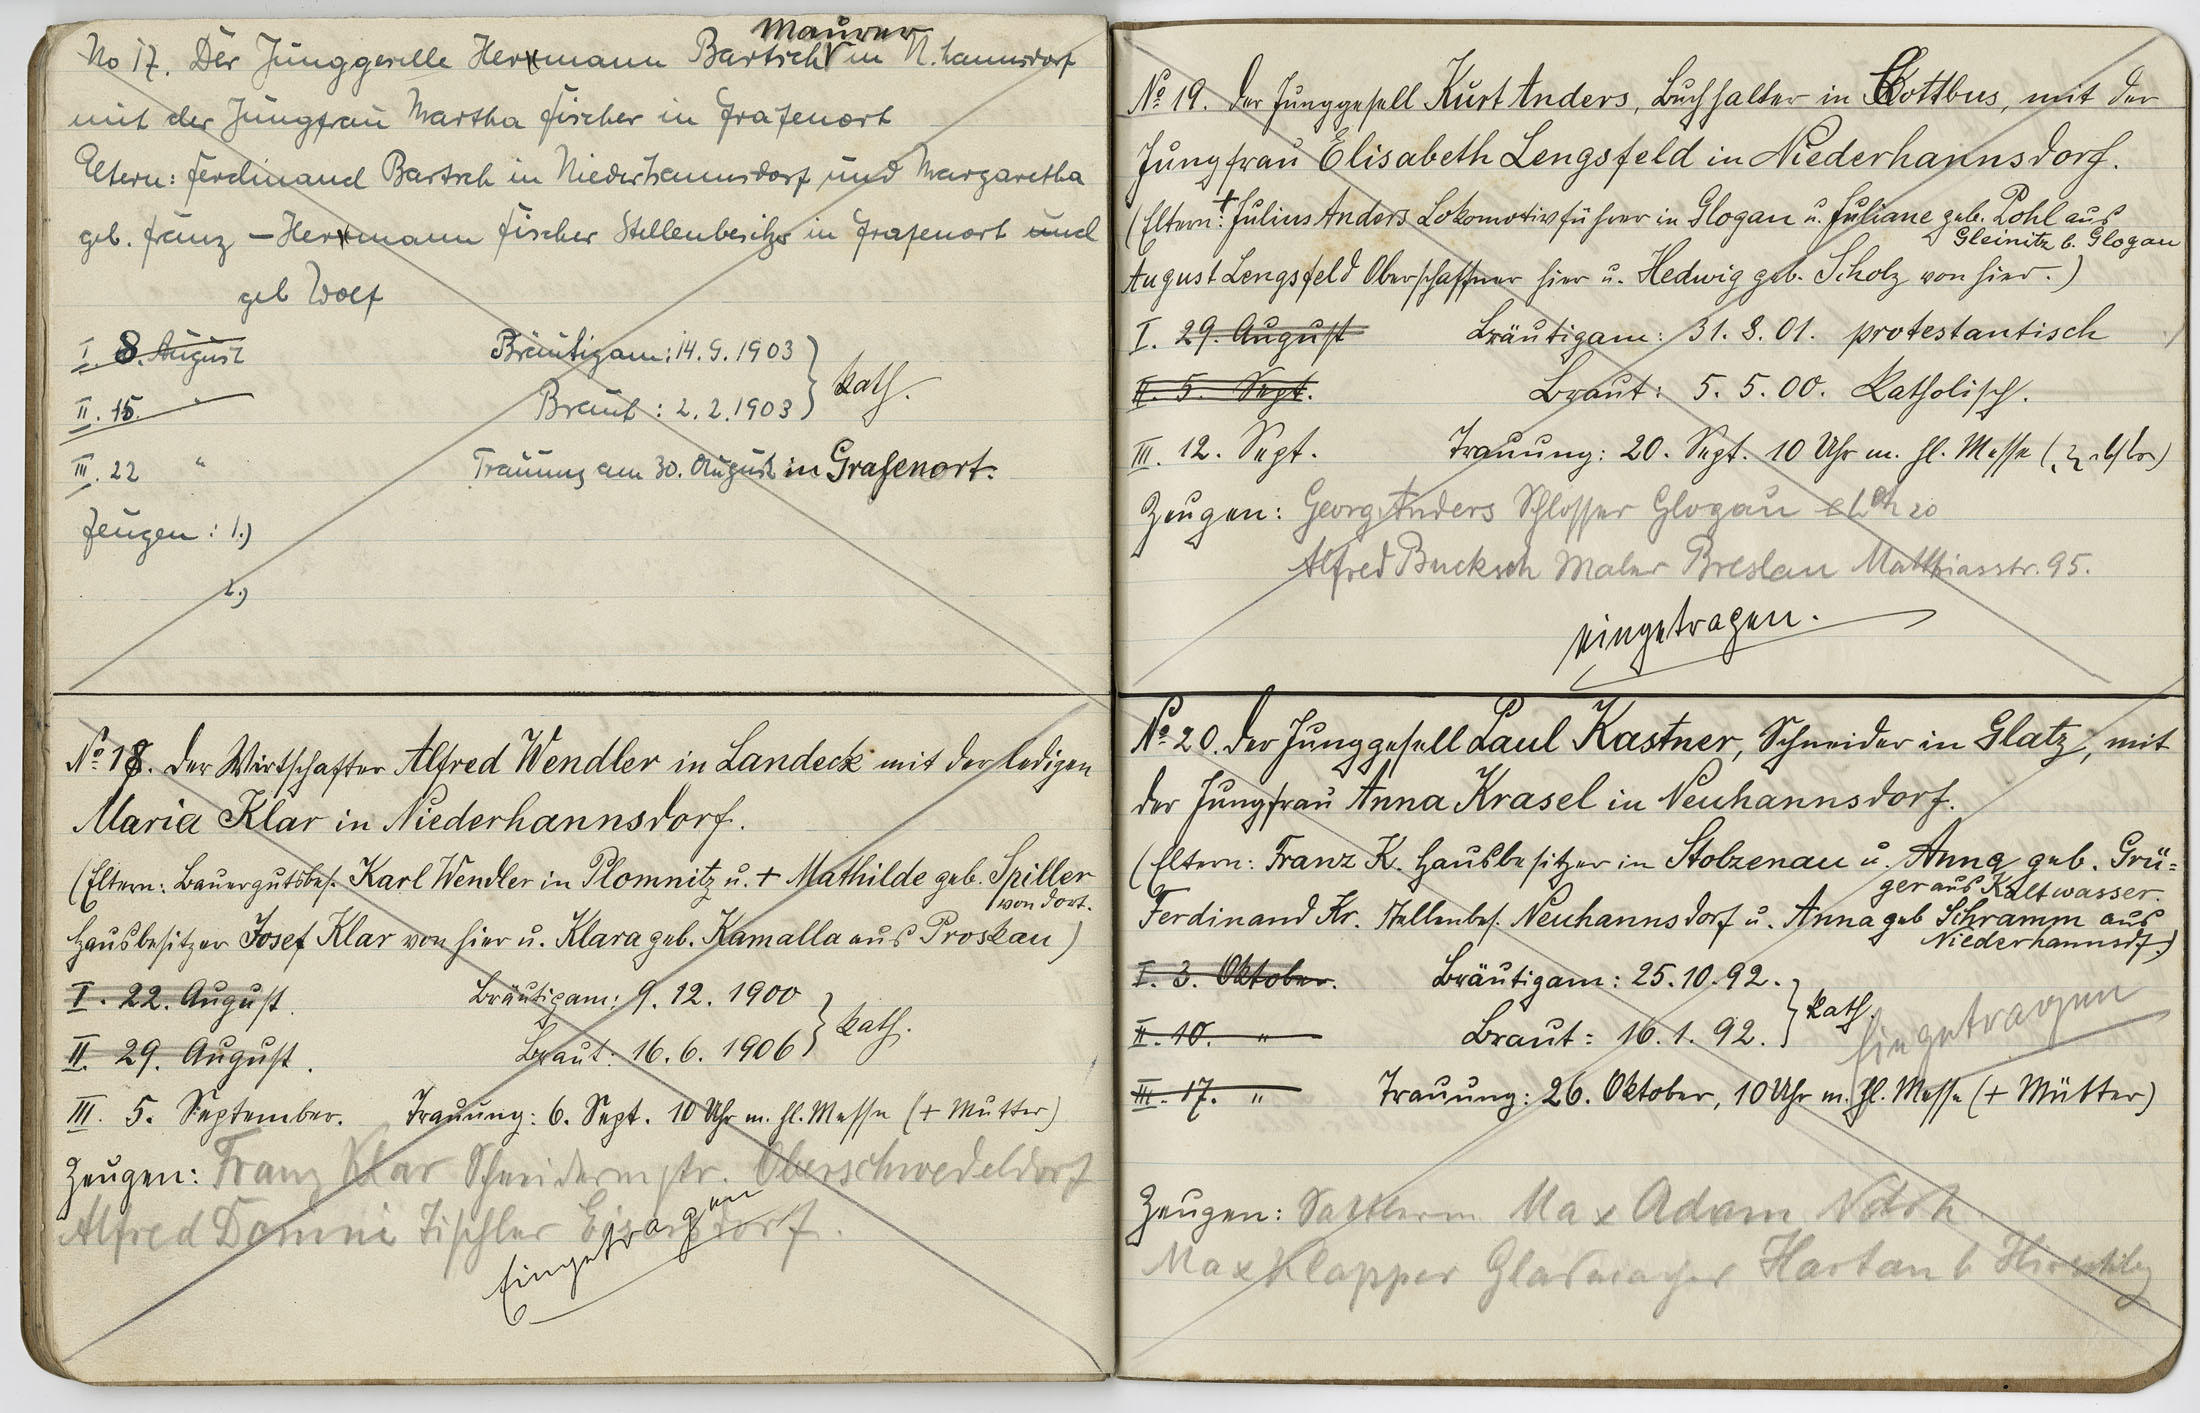 Maurer
No 17. Der Junggeselle Hermann Bartsch in N.hannsdorf
mit der Jungfrau Martha Fischer in Grafenort
Eltern: Ferdinand Bartsch in Niederhannsdorf und Margaretha
geb. Franz – Hermann Fischer Stellenbesitzer in Grafenort und
geb Wolf
I. 8. August Bräutigam: 14. 9. 1903
II. 15. " Braut: 2. 2. 1903 } kath.
III. 22 " Trauung am 30. August in Grafenort.
Zeugen: 1.)
2.)
No 18. Der Wirtschafter Alfred Wendler in Landeck mit der ledigen
Maria Klar in Niederhannsdorf.
(Eltern: Bauergutsbes. Karl Wendler in Plomnitz u. + Mathilde geb. Spiller
von dort.
Hausbesitzer Josef Klar von hier u. Klara geb. Kamalla aus Proskau)
I. 22. August. Bräutigam: 9. 12. 1900
II. 29. August. Braut: 16. 6. 1906 } kath.
III. 5. September. Trauung: 6. Sept. 10 Uhr m. hl. Messe (+ Mutter)
Zeugen: Franz Klar Schneidermstr. Oberschwedeldorf
Alfred Domni Tischler Eisersdorf.
Eingetragen
No 19. Der Junggesell Kurt Anders, Buchhalter in Cottbus, mit der
Jungfrau Elisabeth Lengsfeld in Niederhannsdorf.
(Eltern: + Julius Anders Lokomotivführer in Glogau u. Juliane geb. Pohl aus
Gleinitz b. Glogau
August Lengsfeld Oberschaffner hier u. Hedwig geb. Scholz von hier.)
I. 29. August Bräutigam: 31. 8. 01. protestantisch
II. 5. Sept. Braut: 5. 5. 00. katholisch.
III. 12. Sept. Trauung: 20. Sept. 10 Uhr m. hl. Messe
Zeugen: Georg Anders Schlosser Glogau 20
Alfred Bucksch Maler Breslau Matthiasstr. 95.
eingetragen.
No 20. Der Junggesell Paul Kastner, Schneider in Glatz, mit
der Jungfrau Anna Krasel in Neuhannsdorf.
(Eltern: Franz K. Hausbesitzer in Stolzenau u. Anna geb. Grü-
ger aus Kaltwasser.
Ferdinand Kr. Stellenbes. Neuhannsdorf u. Anna geb Schramm aus
Niederhannsdf.)
I. 3. Oktober. Bräutigam: 25. 10. 92.
II. 10. " Braut: 16. 1. 92. } kath.
Eingetragen
III. 17. " Trauung: 26. Oktober, 10 Uhr m. hl. Messe (+ Mütter)
Zeugen: Max Adam
Max Klapper Hartau b